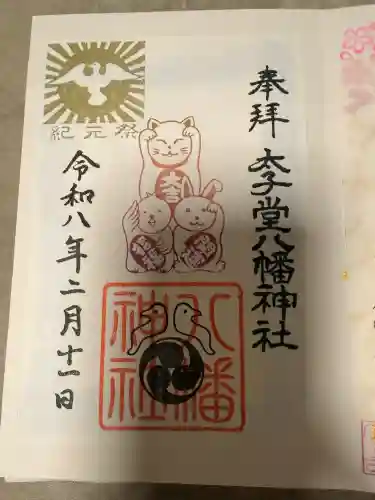 奉拝
太子堂八幡神社
紀元祭
令和八年二月十一日
八幡
神社